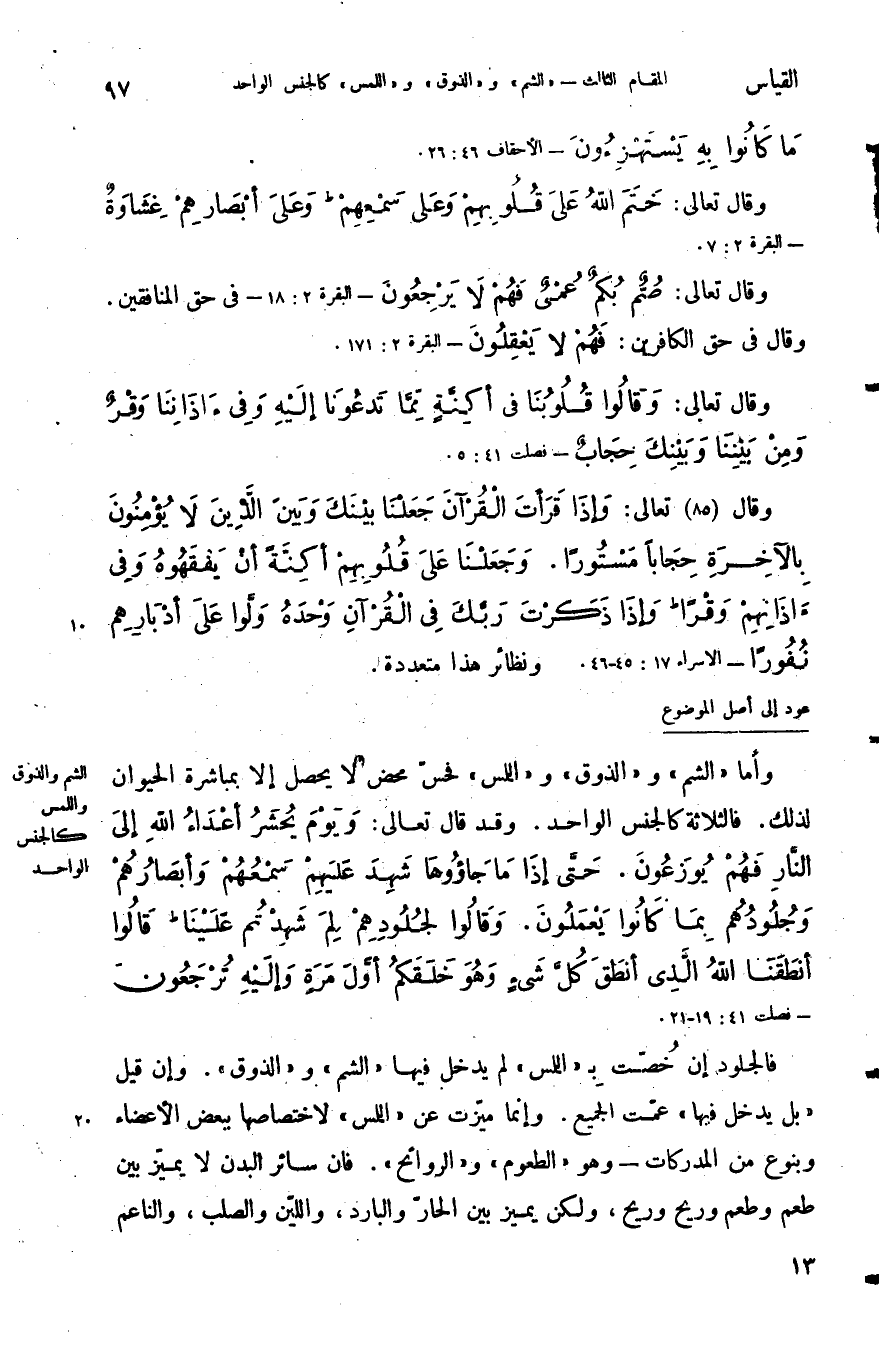 القياس المقام الثالث – «الشم» و «الذوق» و «اللمس» كالجنس الواحد ٩٧
مَا كَانُوا بِهِ يَسْتَهْزِءُونَ – الأحقاف ٤٦ : ٢٦ ٠
وقال تعالى: خَتَمَ اللهُ عَلىَ قُلُوبِهِمْ وَعَلى سَمْعِهِمْ ط وَعَلىَ أبْصَارِهِمْ غِشَاوَةٌ
– البقرة ٢ : ٧ ٠
وقال تعالى: صُمٌّ بُكْمٌ عُمْىٌ فَهُمْ لَا يَرْجِعُونَ – البقرة ٢ : ١٨ – فى حق المنافقين .
وقال فى حق الكافرين : فَهُمْ لا يَعْقِلُونَ – البقرة ٢ : ١٧١ ٠
وقال تعالى: وَقَالُوا قُلُوبُنَا فى أكِنَّةٍ مِمَّا تَدعُونَا إلَيْهِ وَفِى ءَاذَانِنَا وَقْرٌ
وَمِنْ بَيْنِنَا وَبَيْنِكَ حِجَابٌ – فصلت ٤١ : ٥ ٠
وقال (٨٥) تعالى: وَإذَا قَرَأتَ الْقُرْآنَ جَعَلْنَا بيْنَكَ وَبَينَ الَّذِينَ لَا يُؤْمِنُونَ
بِالآخِرَةِ حِجَاباً مَسْتُورًا . وَجَعَلْنَا عَلىَ قُلُوبِهِمْ أكِنَّةً أنْ يَفقَهُوهُ وَفِى
ءَاذَانِهِمْ وَقْرًا ط وَإذَا ذَكَرْتَ رَبَّكَ فِى الْقُرْآنِ وَحْدَهُ وَلَّوا عَلىَ أدْبَارِهِم ١٠
نُفُورًا – الاسراء ١٧ : ٤٥-٤٦ ٠ ونظائر هذا متعددة .
عود إلى أصل الموضوع
وأما «الشم» و «الذوق» و «اللمس» فحسّ محض لا يحصل إلا بمباشرة الحيوان
الشم والذوق
واللمس
كالجنس
الواحد
لذلك. فالثلاثة كالجنس الواحد . وقد قال تعالى: وَيَوْمَ يُحْشَرُ أعْدَاءُ اللهِ إلىَ
النَّارِ فَهُمْ يُوزَعُونَ . حَتَّى إذَا مَا جَاؤُوهَا شَهِدَ عَلَيهِمْ سَمْعُهُمْ وَأبصَارُهُمْ
وَجُلُودُهُم بِمَا كَانُوا يَعْمَلُونَ. وَقَالُوا لِجُلُودِهِمْ لِمَ شَهِدْتُم عَلَيْنَا ط قَالُوا
أنطَقَنَا اللهُ الَّذِى أنطَقَ كُلَّ شَىءٍ وَهُوَ خَلَقَكُمْ أوَّلَ مَرَةٍ وَإلَيْهِ تُرْجَعُونَ
– فصلت ٤١ : ١٩-٢١ ٠
فالجلود إن خُصّت بـ «اللمس» لم يدخل فيها «الشم» و «الذوق» . وإن قيل
«بل يدخل فيها» عمّت الجميع . وإنما ميّزت عن «اللمس» لاختصاصها ببعض الأعضاء ٢٠
وبنوع من المدركات – وهو «الطعوم» و«الروائح» . فان سائر البدن لا يميّز بين
طعم وطعم وريح وريح ، ولكن يميز بين الحارّ والبارد ، والليّن والصلب ، والناعم
١٣